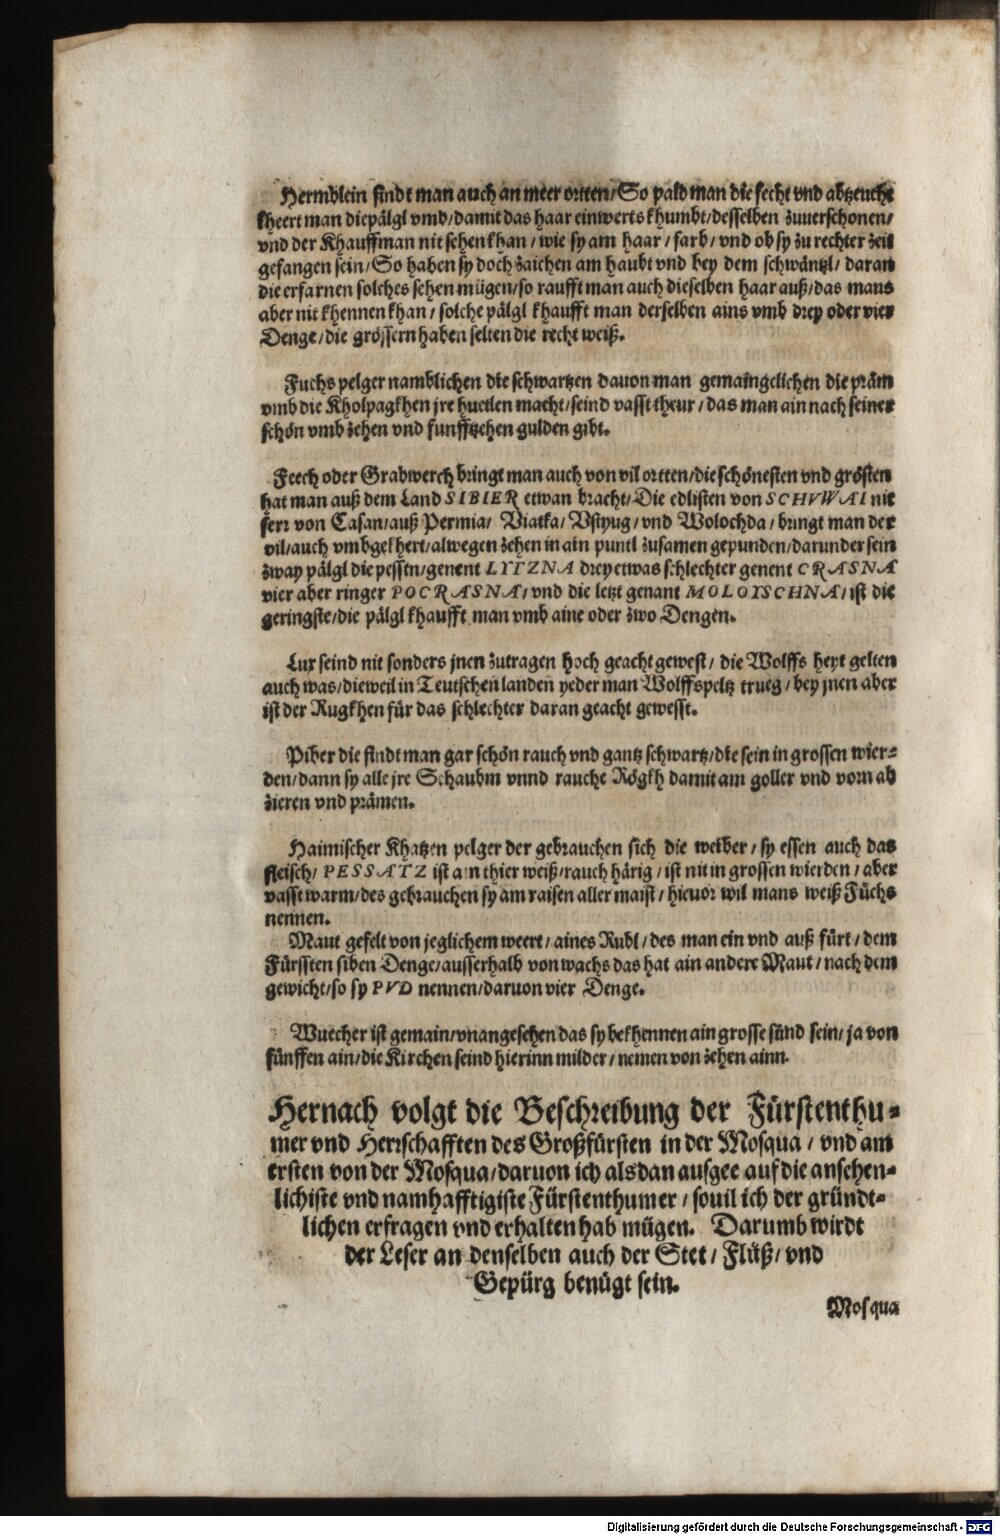 Hermblein findt man auch an meer ortten/ So pald man die fecht vnd abtzeucht
kheert man die pälgl vmb/ damit das haar einwerts khumbt/ desselben zuuerschonen/
vnd der Khauffman nit sehen khan/ wie sy am haar/ farb/ vnd ob sy zu rechter zeit
gefangen sein/ So haben sy doch zaichen am haubt vnd bey dem schwäntzl/ daran
die erfarnen solches sehen mügen/ so raufft man auch dieselben haar auß/ das mans
aber nit khennen khan/ solche pälgl khaufft man derselben ains vmb drey oder vier
Denge/ die grössern haben selten die recht weiß.
Fuchs pelger namblichen die schwartzen dauon man gemaingelichen die präm
vmb die Kholpagkhen jre huetlen macht/ seind vasst theur/ das man ain nach seiner
schön vmb zehen vnd funfftzehen gulden gibt.
Feech oder Grabwerch bringt man auch von vil ortten/ die schönesten vnd grösten
hat man auß dem Land SIBIER etwan bracht/ Die edlisten von SCHVWAI nit
ferr von Casan/ auß Permia/ Viatka/ Vstyug/ vnd Wolochda/ bringt man der
vil/ auch vmbgekhert/ alwegen zehen in ain puntl zusamen gepunden/ darunder sein
zway pälgl die pesstn/ genent LYTZNA drey etwas schlechter genent CRASNA
vier aber ringer POCRASNA/ vnd die letzt genant MOLOYSCHNA/ ist die
geringste/ die pälgl khaufft man vmb aine oder zwo Dengen.
Lux seind nit sonders jnen zutragen hoch geacht gewest/ die Wolffs heyt gelten
auch was/ dieweil in Teutschen landen yeder man Wolffspeltz trueg/ bey jnen aber
ist der Rugkhen für das schlechter daran geacht gewesst.
Piber die findt man gar schön rauch vnd gantz schwartz/ die sein in grossen wier-
den/ dann sy alle jre Schaubm vnnd rauche Rögkh damit am goller vnd vorn ab
zieren vnd prämen.
Haimischer Khatzen pelger der gebrauchen sich die weiber/ sy essen auch das
fleisch/ PESSATZ ist ain thier weiß/ rauch härig/ ist nit in grossen wierden/ aber
vasst warm/ des gebrauchen sy am raisen aller maist/ hieuor wil mans weiß Füchs
nennen.
Maut gefelt von jeglichem weert/ aines Rubl/ des man ein vnd auß fürt/ dem
Fürssten siben Denge/ ausserhalb von wachs das hat ain andere Maut/ nach dem
gewicht/ so sy PVD nennen/ daruon vier Denge.
Wuecher ist gemain/ vnangesehen das sy bekhennen ain grosse sünd sein/ ja von
fünffen ain/ die Kirchen seind hierinn milder/ nemen von zehen ainn.
Hernach volgt die Beschreibung der Fürstenthu-
mer vnd Herrschafften des Großfürsten in der Mosqua/ vnd am
ersten von der Mosqua/ daruon ich alsdan ausgee auf die ansehen-
lichiste vnd namhafftigiste Fürstenthumer/ souil ich der gründt-
lichen erfragen vnd erhalten hab mügen. Darumb wirdt
der Leser an denselben auch der Stet/ Flüß/ vnd
Gepürg benügt sein.
Mosqua
Digitalisierung gefördert durch die Deutsche Forschungsgemeinschaft - DFG